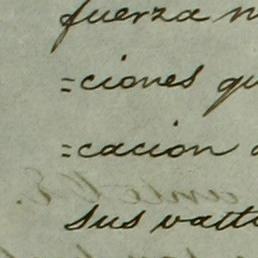 fuerza n
=ciones qu
=cacion
sus vatt